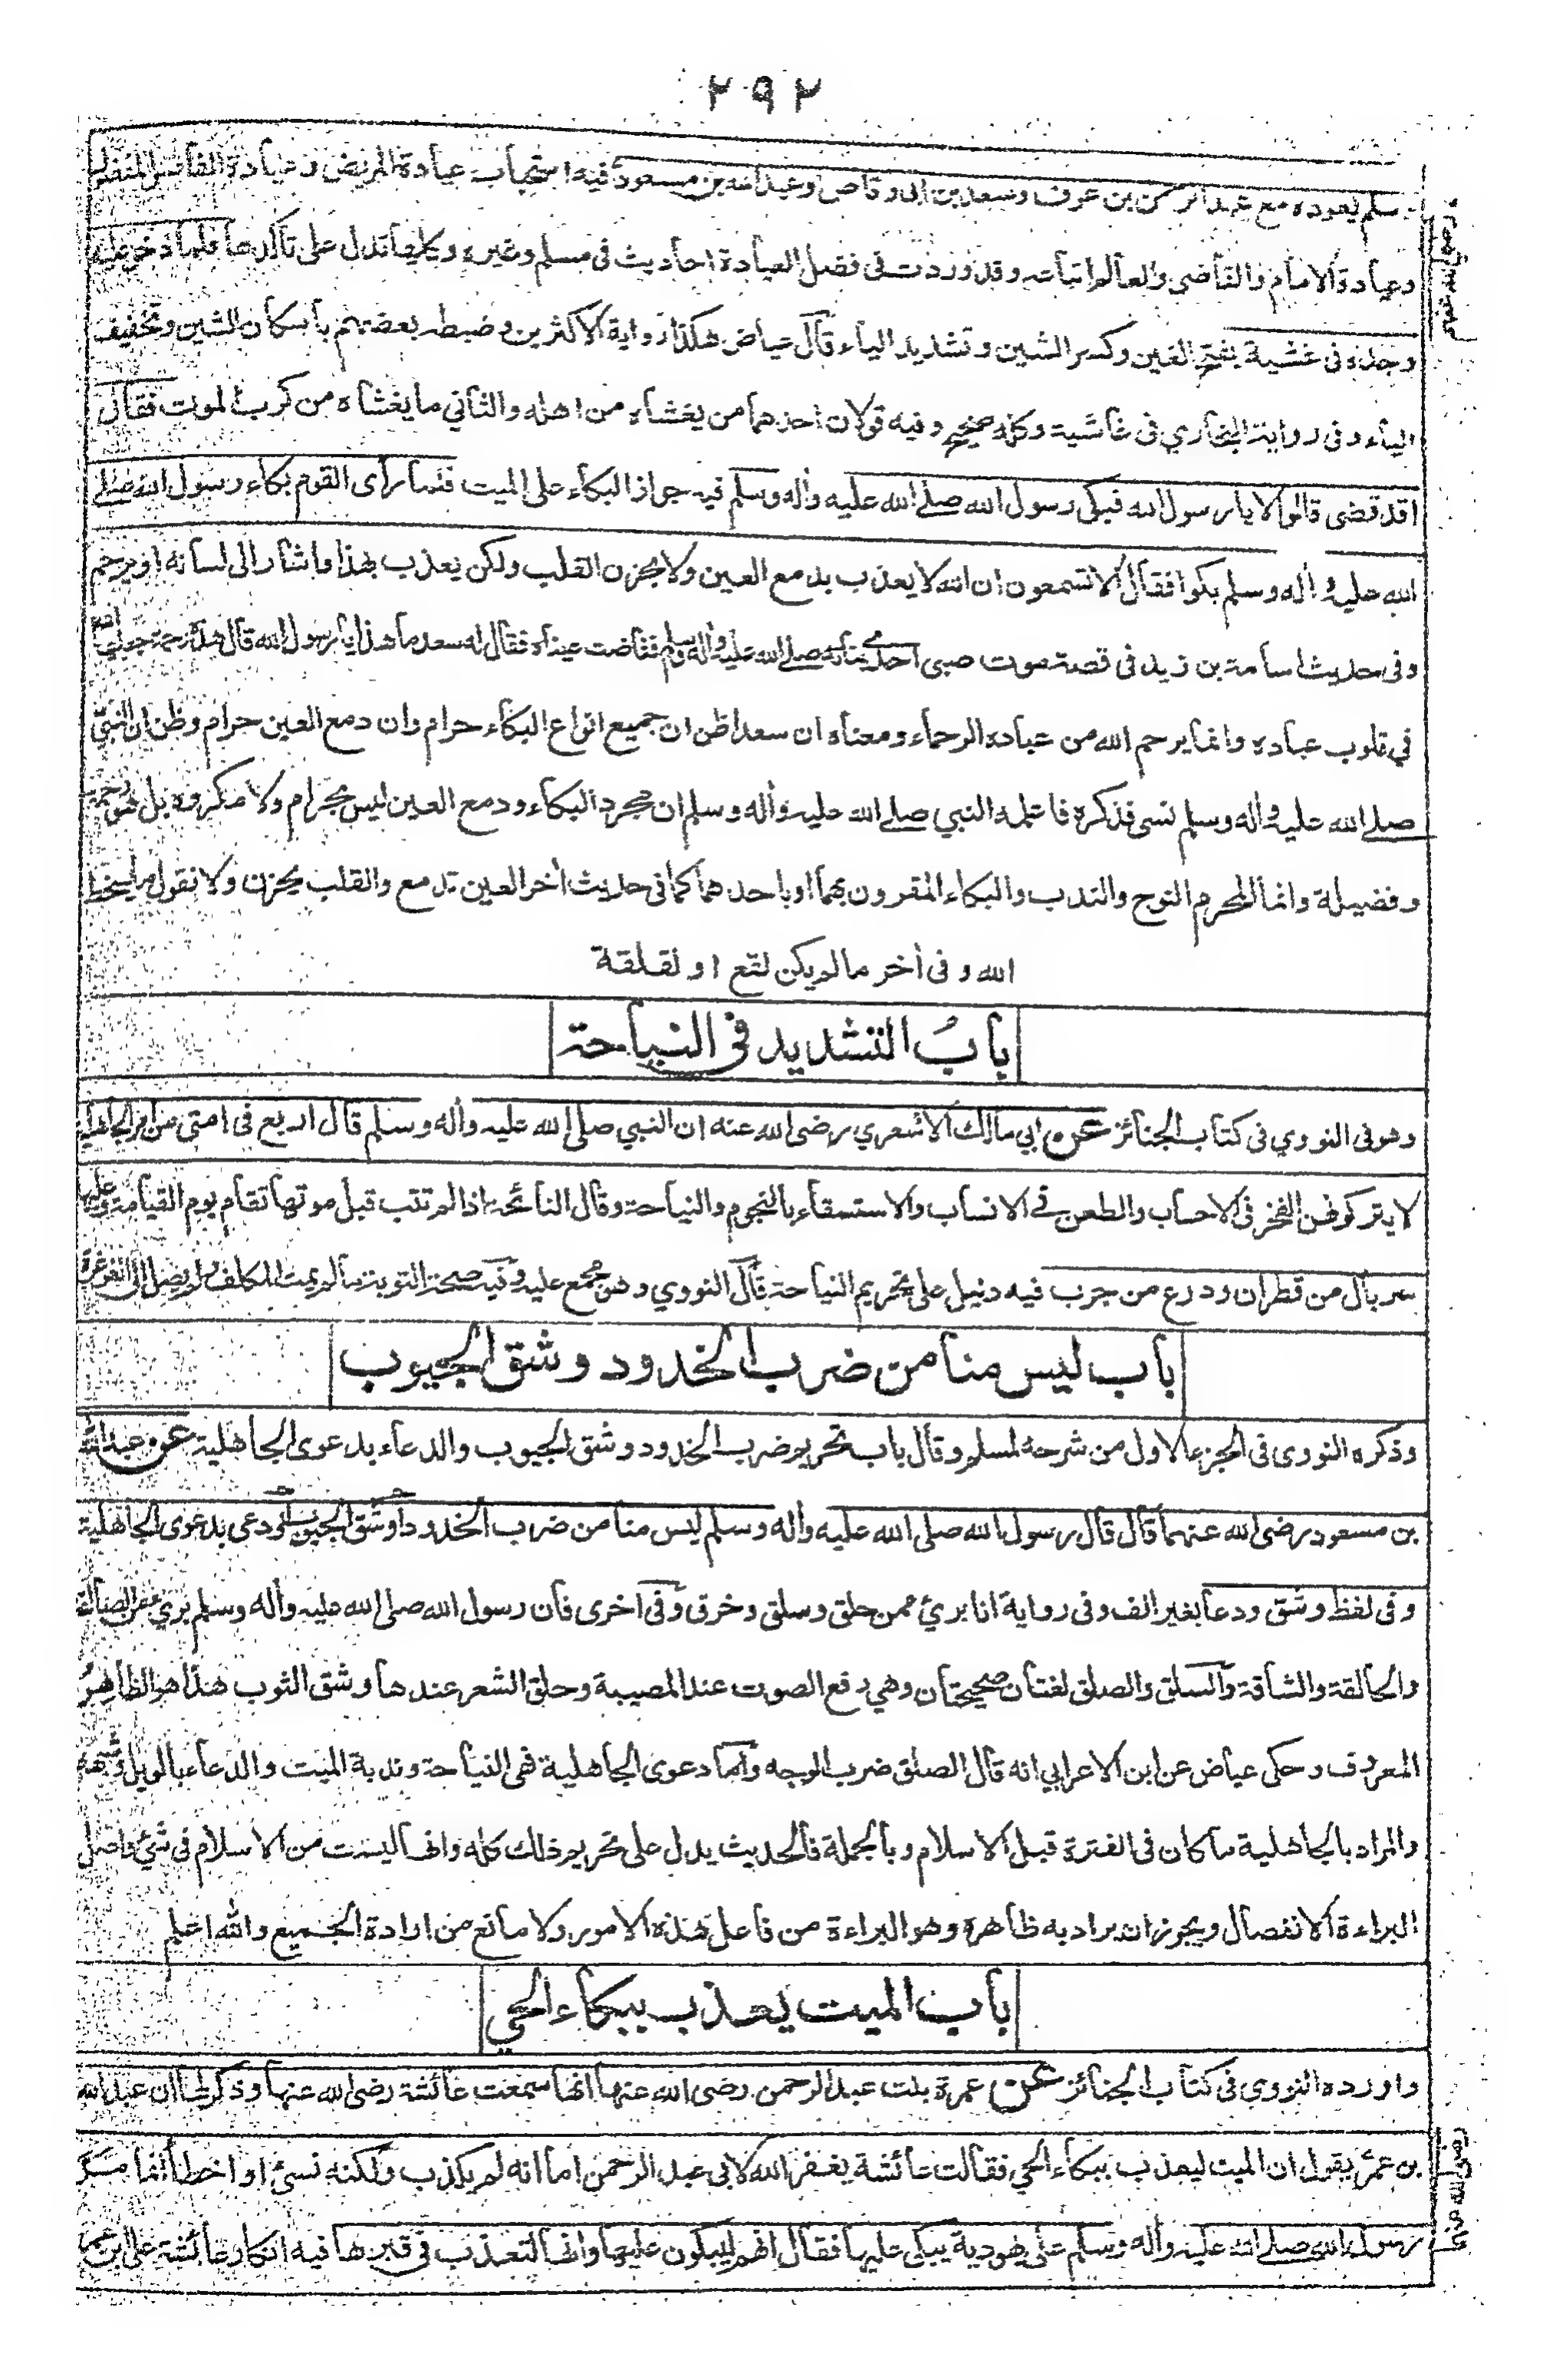 ٢٩٢
وسلم يعوده مع عبد الرحمن بن عوف وسعد بن ابى وقاص وعبد الله بن مسعود فيه استحباب عيادة المريض وعيادة الفاضل المفضول
وعيادة الامام والقاضى والعالم اتباعه وقد وردت فى فضل العيادة احاديث فى مسلم وغيره وكلها تدل على تأكدها فلما دخل عليه
وجده فى غشية بفتح الغين وكسر الشين وتشديد الياء قال عياض هكذا رواية الاكثرين وضبطه بعضهم باسكان الشين وتخفيف
الياء وفى رواية البخاري فى غاشية وكله صحيح وفيه قولان احدهما من يغشاه من اهله والثاني ما يغشاه من كرب الموت فقال
اقد قضى قالوا لا يا رسول الله فبكى رسول الله صلى الله عليه وأله وسلم فيه جواز البكاء على الميت فلما رأى القوم بكاء رسول الله صلى
الله عليه وأله وسلم بكوا فقال الا تسمعون ان الله لا يعذب بدمع العين ولا بحزن القلب ولكن يعذب بهذا واشار الى لسانه او يرحم
وفى حديث اسامة بن زيد فى قصة موت صبى احدى بناته صلى الله عليه وأله وسلم ففاضت عيناه فقال له سعد ما هذا يا رسول الله قال هذه رحمة جعلها الله
في قلوب عباده وانما يرحم الله من عباده الرحماء ومعناه ان سعدا ظن ان جميع انواع البكاء حرام وان دمع العين حرام وظن ان النبي
صلى الله عليه وأله وسلم نسى فذكره فاعلمه النبي صلى الله عليه وأله وسلم ان مجرد البكاء ودمع العين ليس بحرام ولا مكروه بل هو رحمة
وفضيلة وانما المحرم النوح والندب والبكاء المقرون بهما او باحدهما كما فى حديث أخر العين تدمع والقلب يحزن ولا نقول ما يسخط
الله وفى أخر ما لم يكن لقع او لقلقة
باب التشديد فى النياحة
وهو فى النووي فى كتاب الجنائز عن ابي مالك الاشعري رضى الله عنه ان النبي صلى الله عليه وأله وسلم قال اربع فى امتى من امر الجاهلية
لا يتركونهن الفخر فى الاحساب والطعن فى الانساب والاستسقاء بالنجوم والنياحة وقال النائحة اذا لم تتب قبل موتها تقام يوم القيامة وعليها
سربال من قطران ودرع من جرب فيه دليل على تحريم النياحة قال النووي وهو مجمع عليه وفيه صحة التوبة ما لم يمت المكلف ولم يصل الى الغرغرة
باب ليس منا من ضرب الخدود وشق الجيوب
وذكره النووى فى الجزء الاول من شرحه لمسلم وقال باب تحريم ضرب الخدود وشق الجيوب والدعاء بدعوى الجاهلية عن عبد الله
بن مسعود رضى الله عنهما قال قال رسول الله صلى الله عليه وأله وسلم ليس منا من ضرب الخدود او شق الجيوب او دعى بدعوى الجاهلية
وفى لفظ وشق ودعا بغير الف وفى رواية انا بريء ممن حلق وسلق وخرق وفى اخرى فان رسول الله صلى الله عليه وأله وسلم بري من الصالقة
والحالقة والشاقة والسلق والصلق لغتان صحيحتان وهي رفع الصوت عند المصيبة وحلق الشعر عندها وشق الثوب هذا هو الظاهر
المعروف وحكى عياض عن ابن الاعرابي انه قال الصلق ضرب الوجه وأما دعوى الجاهلية فهى النياحة وندبة الميت والدعاء بالويل وشبهه
والمراد بالجاهلية ما كان فى الفترة قبل الاسلام وبالجملة فالحديث يدل على تحريم ذلك كله وانها ليست من الاسلام فى شيء واصل
البراءة الانفصال ويجوز ان يراد به ظاهره وهو البراءة من فاعل هذه الامور ولا مانع من ارادة الجميع والله اعلم
باب الميت يعذب ببكاء الحي
واورده النووي فى كتاب الجنائز عن عمرة بنت عبد الرحمن رضى الله عنها انها سمعت عائشة رضى الله عنها وذكر لها ان عبد الله
بن عمر يقول ان الميت ليعذب ببكاء الحي فقالت عائشة يغفر الله لابى عبد الرحمن اما انه لم يكذب ولكنه نسئ او اخطأ انما مر
رسول الله صلى الله عليه وأله وسلم على يهودية يبكى عليها فقال انهم ليبكون عليها وانها لتعذب فى قبرها فيه انكار عائشة على ابن عمر